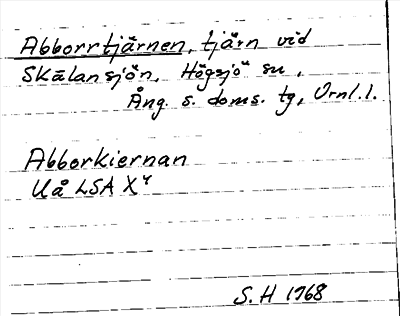 Abborrtjärnen, tjärn vid
Skälansjön, Högsjö sn,
Ång. s. doms. tg, Vrnl.l.
Abborkiernan
Uå LSA X⁴
S. H 1968